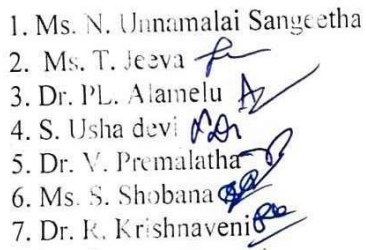 1. Ms. N. Unnamalai Sangeetha
2. Ms. T. Jeeva
3. Dr. PL. Alamelu
4. S. Usha devi
5. Dr. V. Premalatha
6. Ms. S. Shobana
7. Dr. R. Krishnaveni